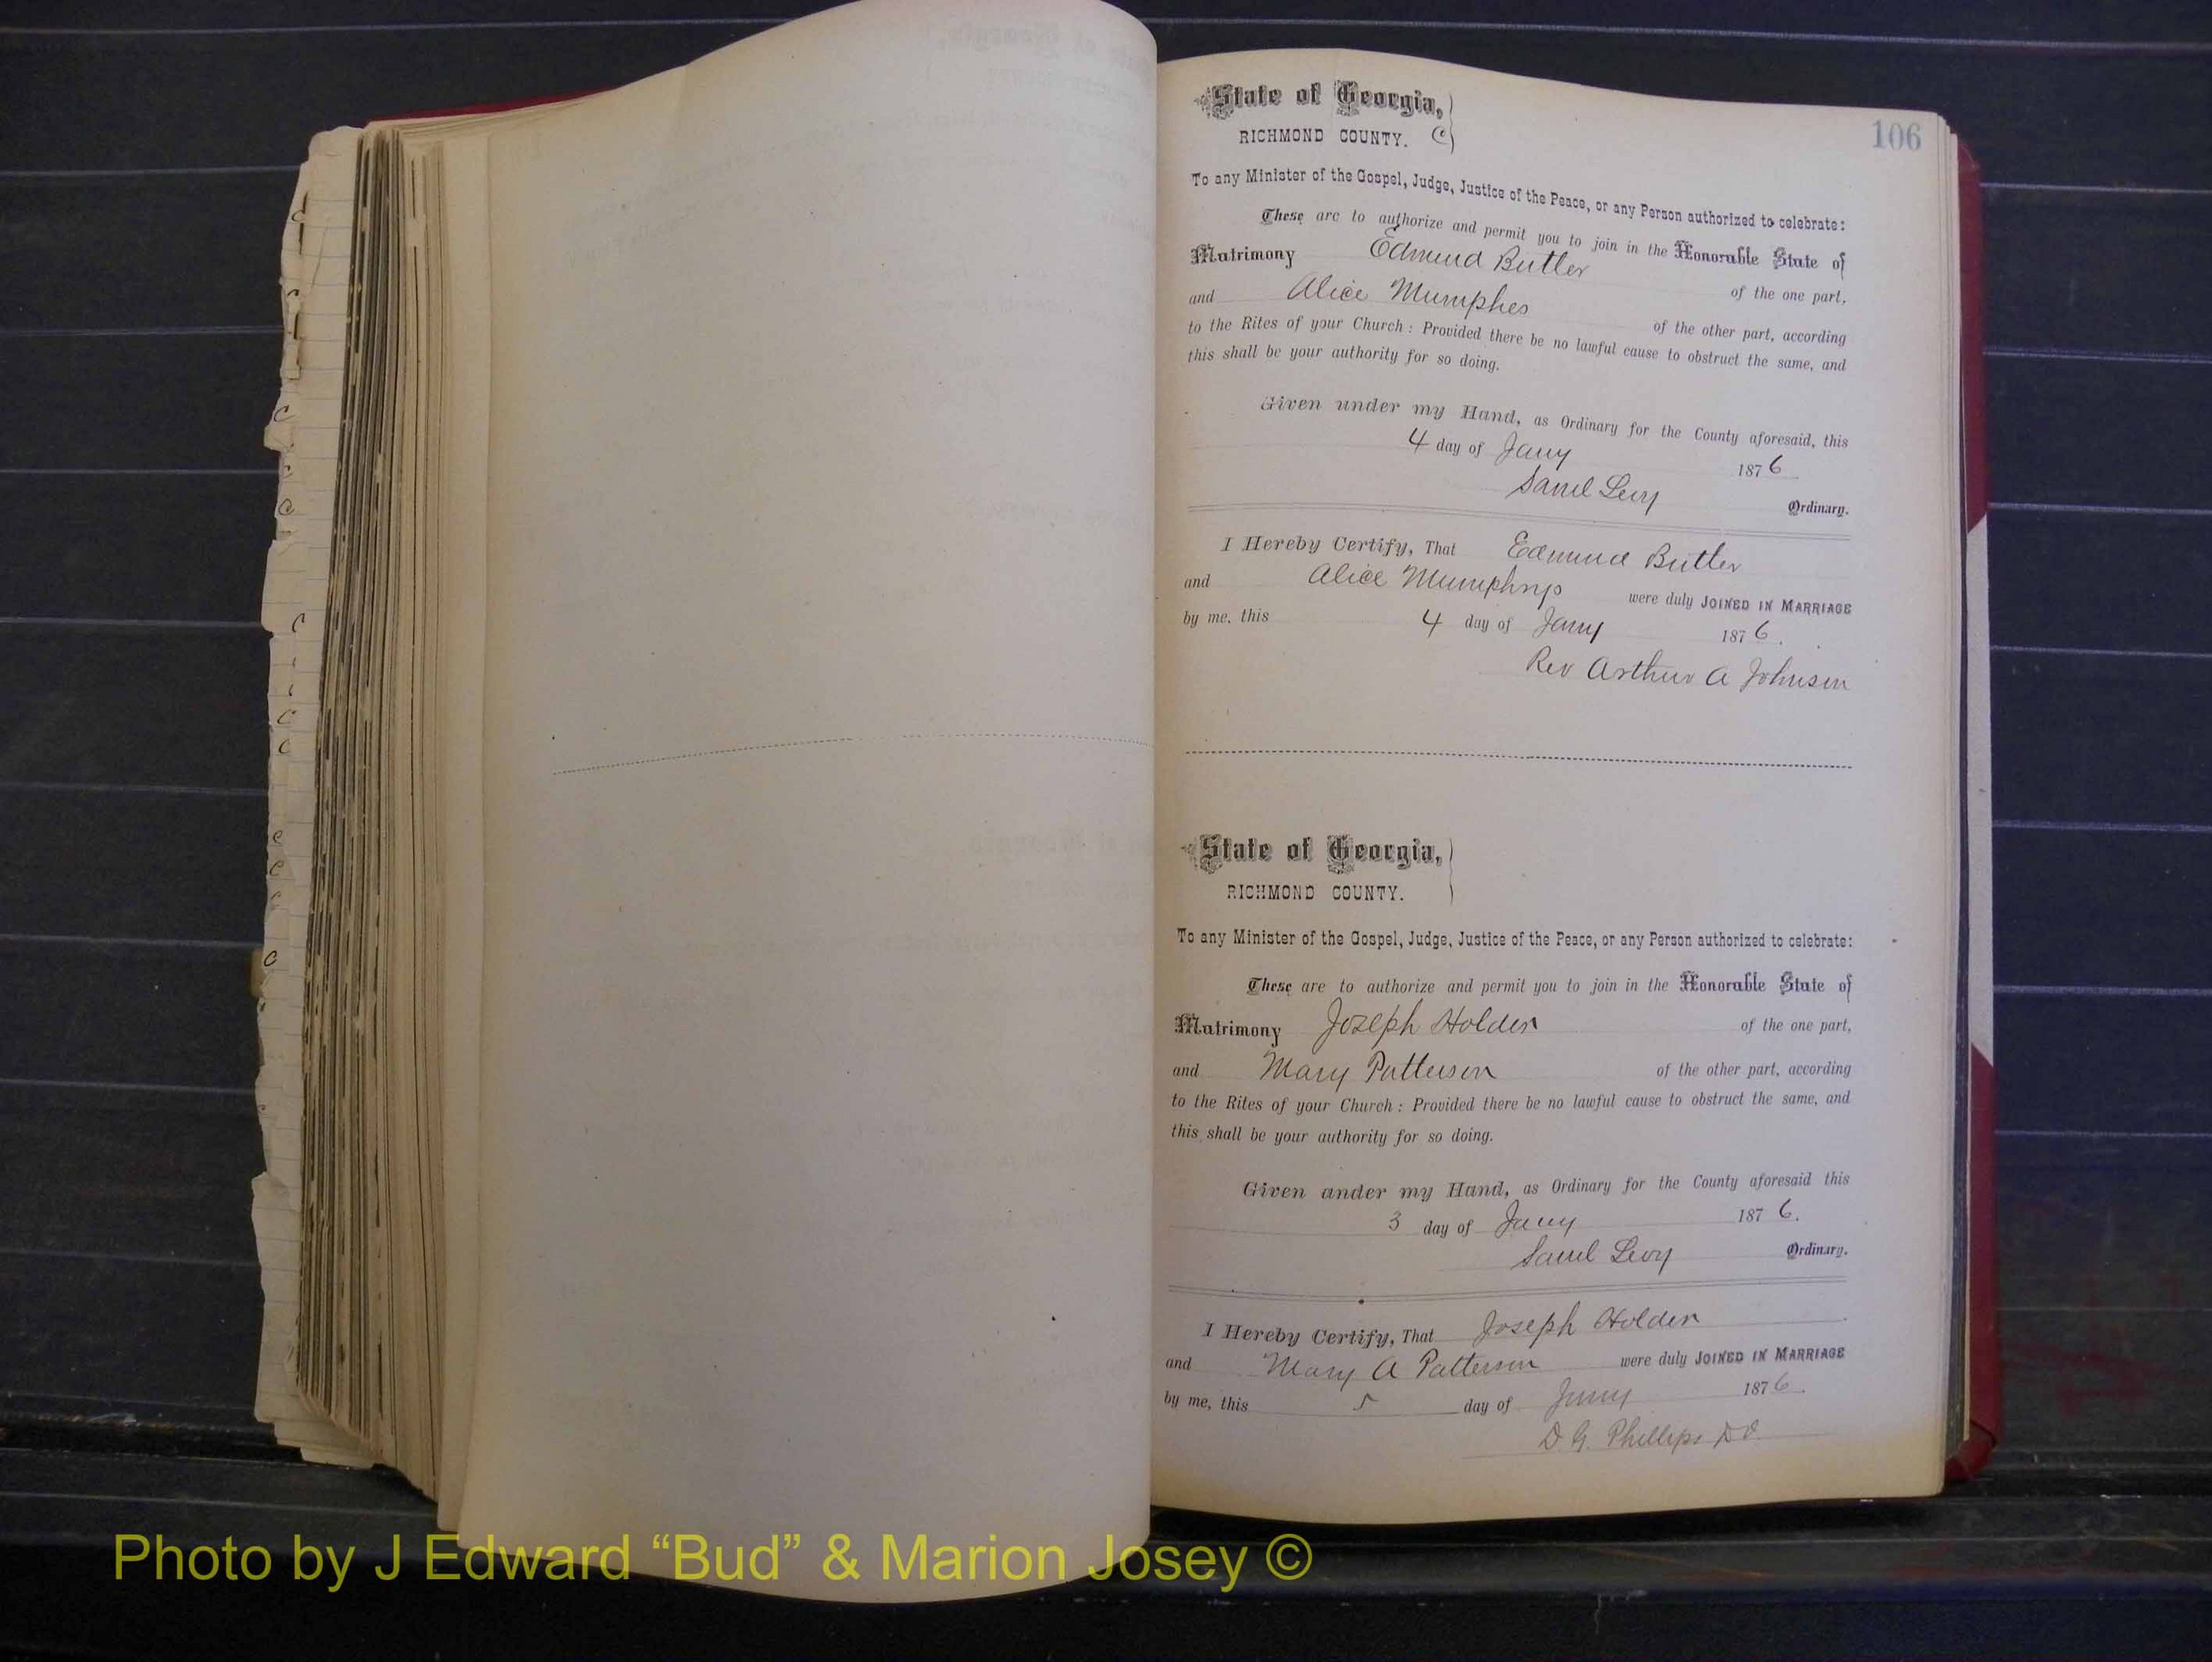 106
State of Georgia,
RICHMOND COUNTY. C
To any Minister of the Gospel, Judge, Justice of the Peace, or any Person authorized to celebrate:
These are to authorize and permit you to join in the Honorable State of
Matrimony Edmund Butler of the one part,
and Alice Mumphes of the other part, according
to the Rites of your Church: Provided there be no lawful cause to obstruct the same, and
this shall be your authority for so doing.
Given under my Hand, as Ordinary for the County aforesaid, this
4 day of Jany 1876
Saml Levy Ordinary.
I Hereby Certify, That Edmund Butler
and Alice Mumphrys were duly JOINED IN MARRIAGE
by me, this 4 day of Jany 1876.
Rev Arthur A Johnson
State of Georgia,
RICHMOND COUNTY.
To any Minister of the Gospel, Judge, Justice of the Peace, or any Person authorized to celebrate:
These are to authorize and permit you to join in the Honorable State of
Matrimony Joseph Holden of the one part,
and Mary Patterson of the other part, according
to the Rites of your Church: Provided there be no lawful cause to obstruct the same, and
this shall be your authority for so doing.
Given under my Hand, as Ordinary for the County aforesaid this
3 day of Jany 1876.
Saml Levy Ordinary.
I Hereby Certify, That Joseph Holden
and Mary A Patterson were duly JOINED IN MARRIAGE
by me, this 5 day of Jany 1876.
D G. Phillips
Photo by J Edward “Bud” & Marion Josey ©